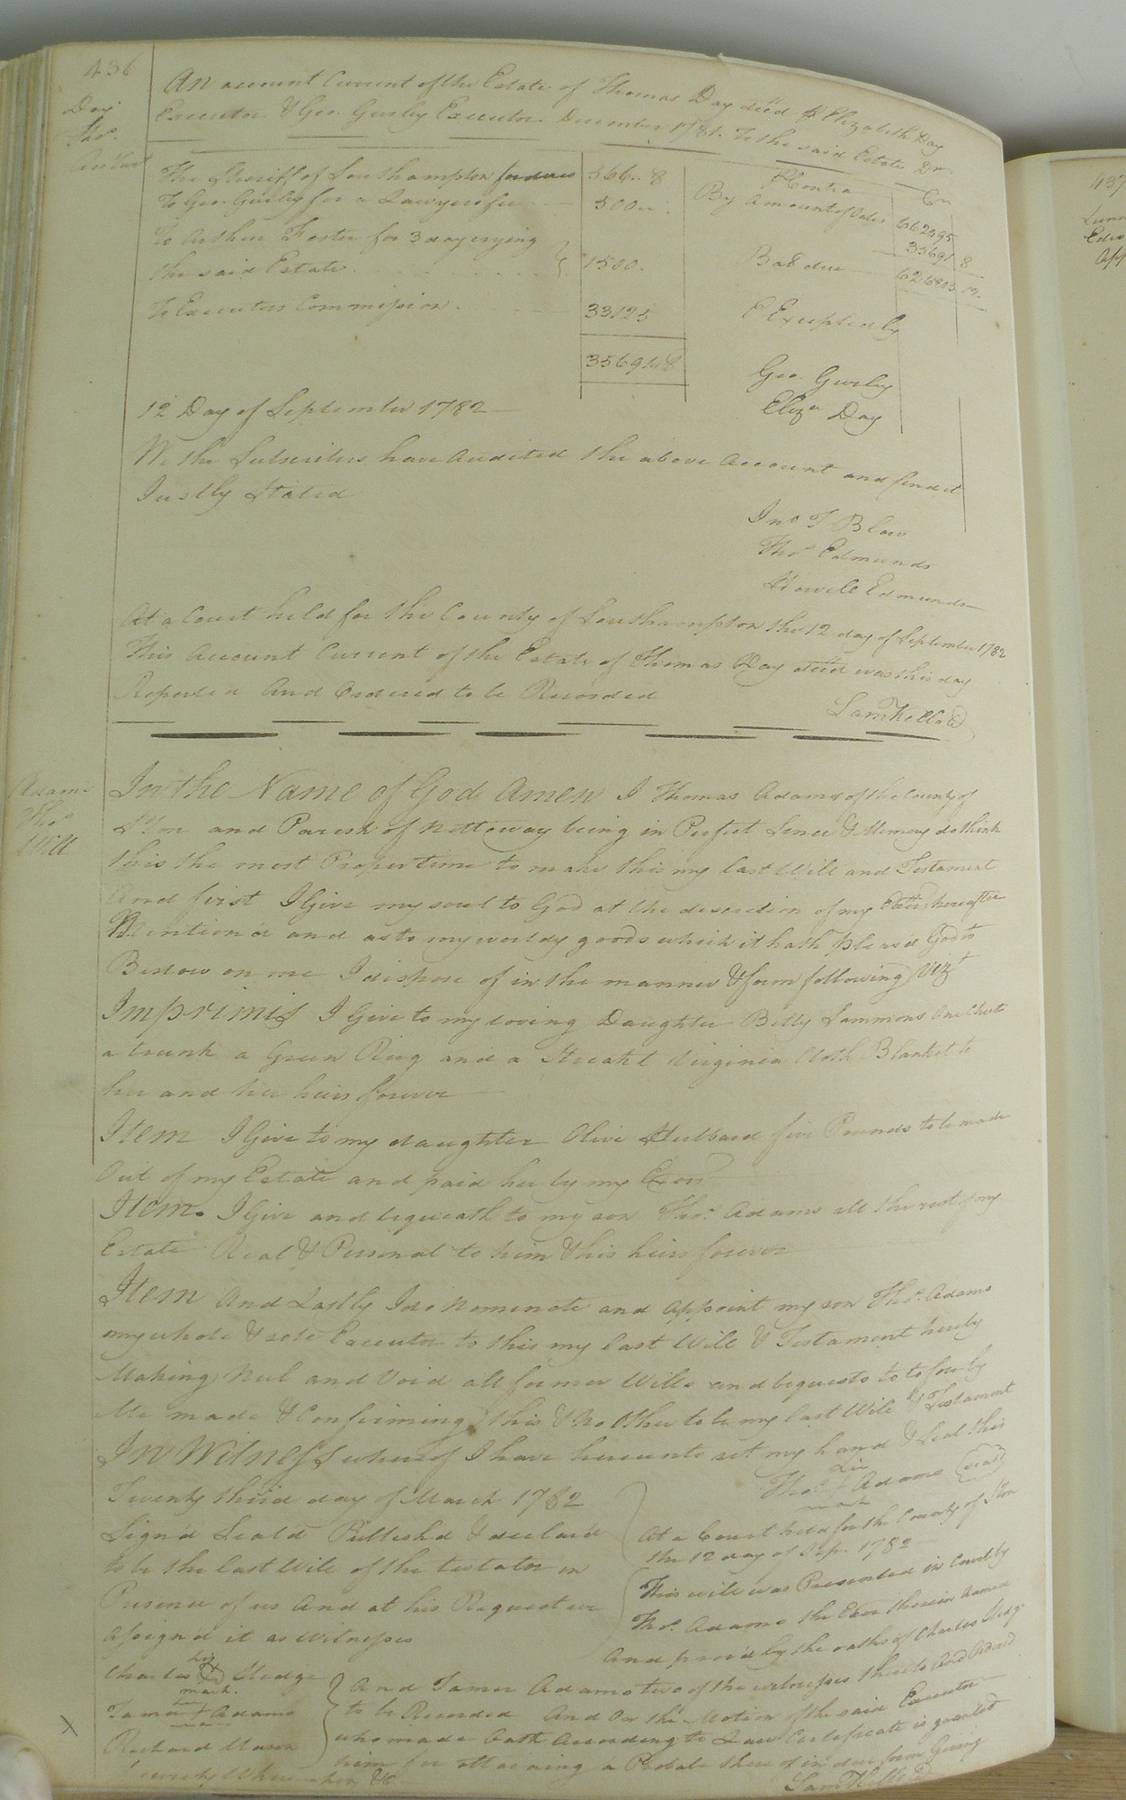 436
Day
Thos.
An account Current of the Estate of Thomas Day dec'd Elizabeth Day
Executor & Geo. Gurley Executor. December 1781. To the said Estate Dr.
The Sheriff of Southampton for dues 566.. 8
To Geo. Gurley for a Lawyers fee 500..
To Arthur Foster for 3 days crying
the said Estate 1500.
To Executors Commission. 33125
35691..8
Contra Cr
By Amount of Sales 662495
35691 8
Bal due 626803.12.
E Exceptenly
Geo. Gurley
Eliza Day
12 Day of September 1782
We the Subscribers have Audited the above Account and find it
Justly Stated
Jno. T Blow
Thos. Edmunds
Howell Edmunds
At a Court held for the County of Southampton the 12 day of September 1782
This Account Current of the Estate of Thomas Day dec'd was this day
Reported And Ordered to be Recorded
Sam Kello
Adams
Thos.
Will
In the Name of God Amen I Thomas Adams of the County of
S'ton and Parish of Nottoway being in Perfect Sence & Memory do think
this the most Proper time to make this my last Will and Testament
And first I Give my soul to God at the discretion of my hereafter
Mentiond and as to my worldy goods which it hath pleasd God to
Bestow on me I dispose of in the manner & form following Vizt
Imprimis I Give to my loving Daughter Betty Sammons One Chest
a trunk a Green Rug and a Virginia Cloth Blanket to
her and her heirs forever
Item I Give to my daughter Olive Hubbard five Pounds to be made
Out of my Estate and paid her by my Exor
Item. I Give and bequeath to my son Thos. Adams all the rest of my
Estate Real & Personal to him & his heirs forever
Item And Lastly I do Nominate and Appoint my son Thos. Adams
my whole & sole Executor to this my last Will & Testament hereby
Making Nul and Void all former Wills and bequests to by
Me made & Confirming this & No Other to be my last Will & Testament
In Witness whereof I have hereunto set my hand & Seal this
Twenty third day of March 1782
his
Thos. + Adams (seal)
mark
Signd Seald Publishd & declar'd
to be the last Will of the testator in
Presence of us And at his Request we
assignd it as Witnesses
his
Charles Sledge
mark.
her
Tamer + Adams
Richard Mason
At a Court held for the County of S'ton
the 12 day of Sep. 1782
This will was Presented in Court by
Thos. Adams the Exor therein named
And prov'd by the oaths of Charles Sledge
And Tamer Adams two of the witnesses thereto And Ordered
to be Recorded And On the Motion of the said Executor
who made Oath According to Law Certificate is granted
him for obtaining a Probate thereof in due form Giving
Sam Kello
437